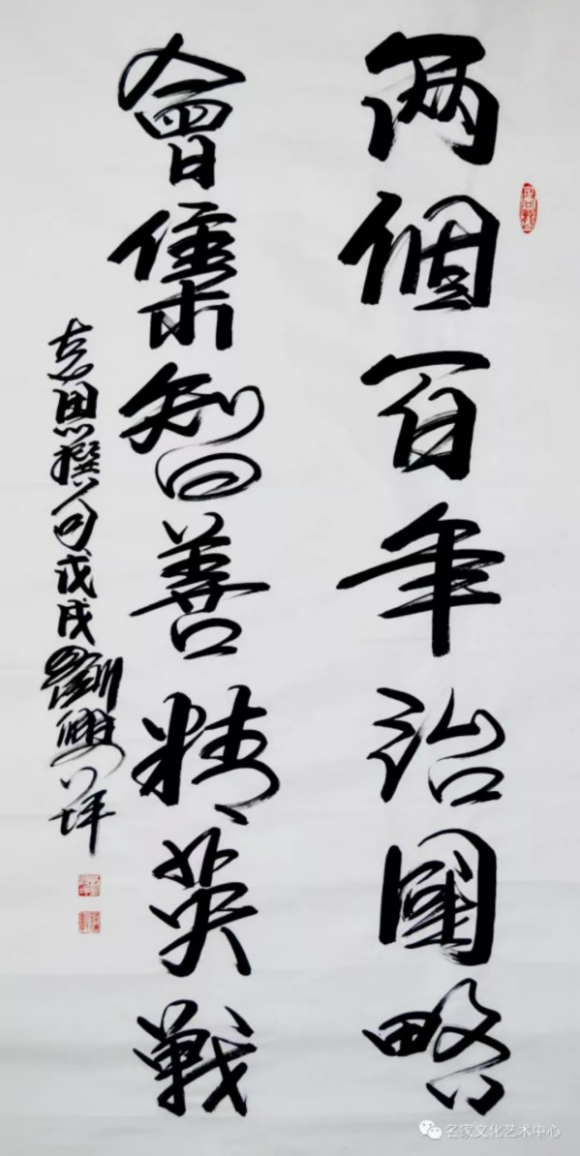 兩個百年治國略
會集智善精英戰
志思撰句戊戌劉興祥
名家文化艺术中心